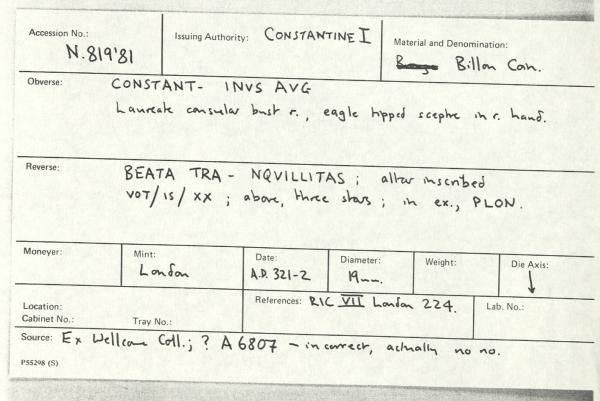 Accession No.:
N.819'81
Issuing Authority: CONSTANTINE I
Material and Denomination:
Billon Coin.
Obverse: CONSTANT- INVS AVG
Laureate consular bust r., eagle tipped sceptre in r. hand.
Reverse: BEATA TRA - NQVILLITAS; altar inscribed
VOT/IS/XX; above, three stars; in ex., PLON.
Moneyer:
Mint:
London
Date:
A.D. 321-2
Diameter:
19mm.
Weight:
Die Axis:
↓
Location:
Cabinet No.: Tray No.:
References: RIC VII London 224.
Lab. No.:
Source: Ex Wellcome Coll.; ? A 6807 - incorrect, actually no no.
P55298 (S)